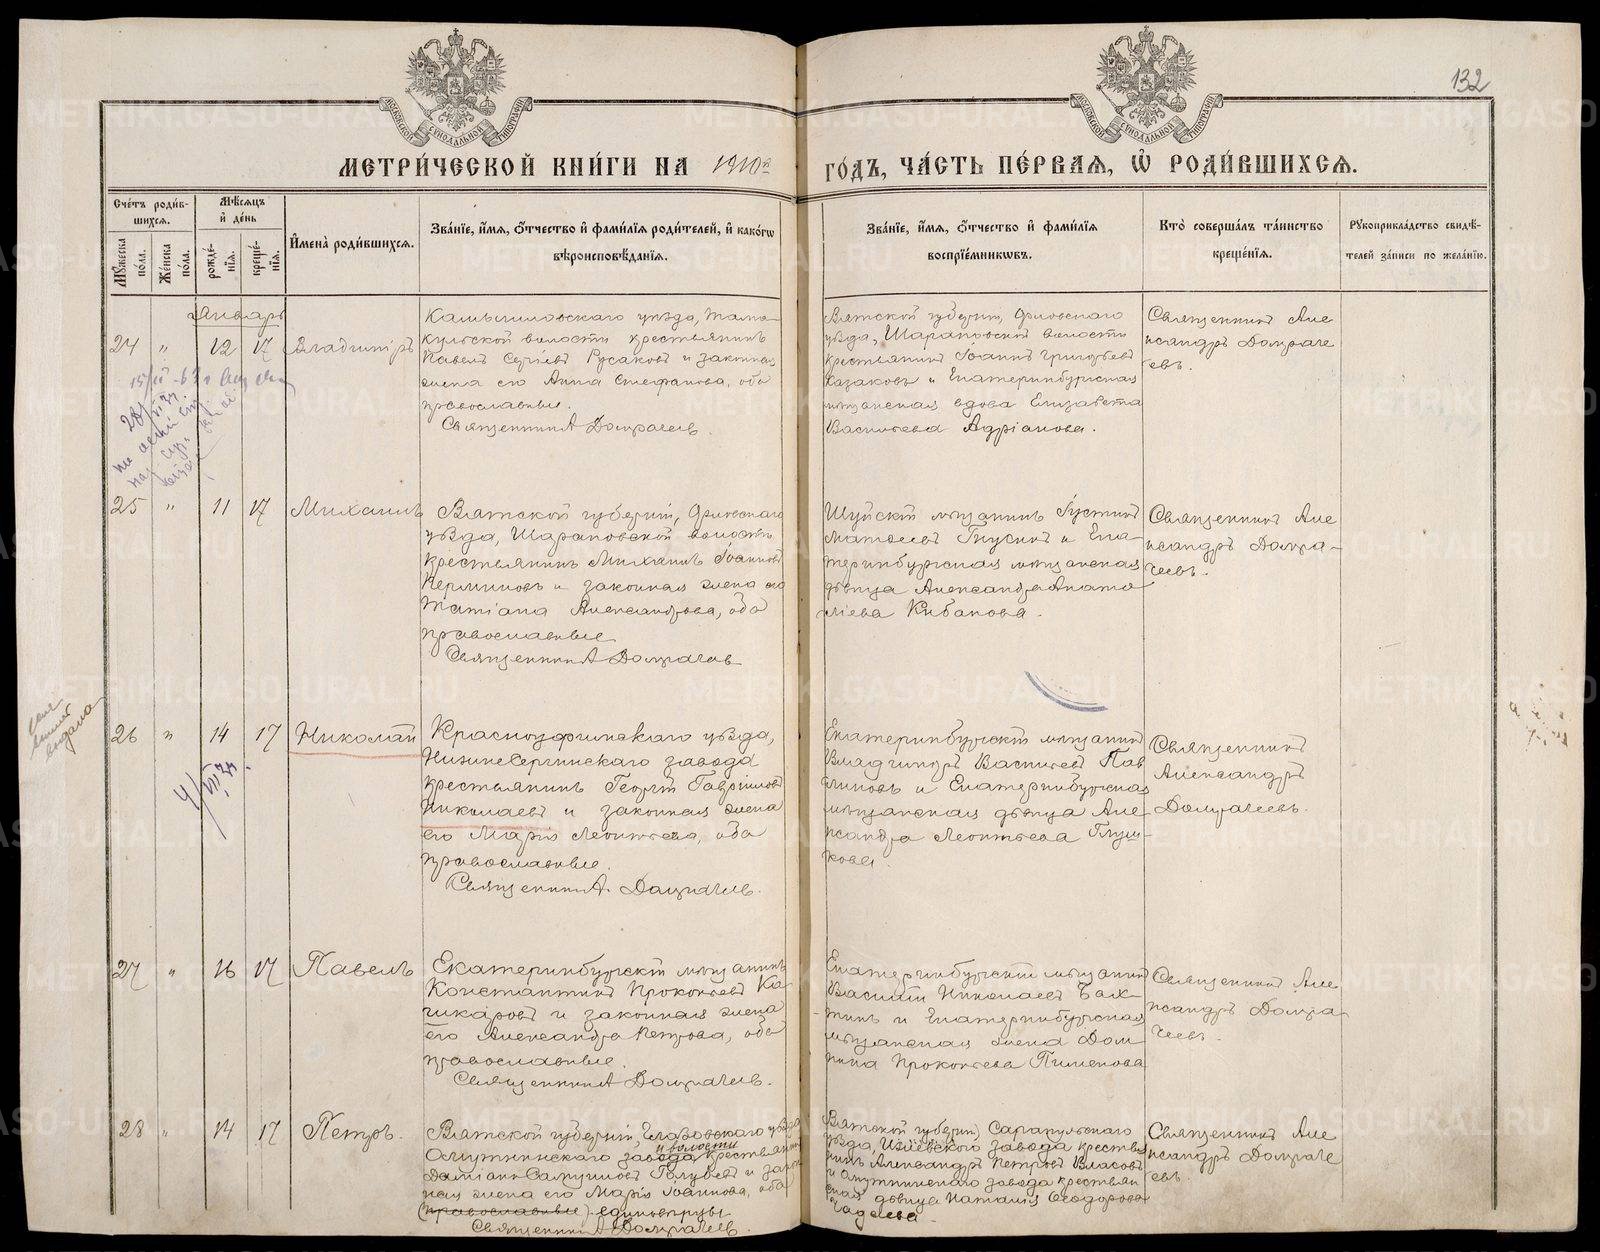 132
МОСКОВСКОЙ СѴНОДАЛЬНОЙ ТИПОГРАФІИ
МОСКОВСКОЙ СѴНОДАЛЬНОЙ ТИПОГРАФІИ
МЕТРИ́ЧЕСКОЙ КНИ́ГИ НА 1910й ГО́ДЪ, ЧА́СТЬ ПЕ́РВАЯ, Ѽ РОДИ́ВШИХСЯ.
Сче́тъ роди́в-
шихся.
Мꙋ́жеска по́ла.
Же́нска по́ла.
Мѣ́сяцъ и҆ де́нь
рожде́-
нїя.
креще́-
нїя.
И҆мена̀ роди́вшихся.
Зва́нїе, и҆́мя, ѻ҆́тчество и҆ фами́лїя роди́телей, и҆ како́гѡ
вѣроисповѣ́данїя.
Зва́нїе, и҆́мя, ѻ҆́тчество и҆ фами́лїя
воспрїе́мникѡвъ.
Кто̀ соверша́лъ та́инство
креще́нїя.
Рꙋкоприкла́дство свидѣ́-
телей за́писи по жела́нїю.
Январь
24 " 12 17 Владимiръ
Камышловскаго уѣзда, Тама-
кульской волости крестьянинъ
Павелъ Сергіевъ Русаковъ и законная
жена его Анна Стефанова, оба
православные.
Священникъ А Домрачевъ.
Вятской губерніи, Орловскаго
уѣзда, Шараповской волости
крестьянинъ Іоаннъ Григорьевъ
Казаковъ и Екатеринбургская
мѣщанская вдова Елизавета
Васильева Адріанова.
Священникъ Але
ксандръ Домраче
евъ.
25 " 11 17 Михаилъ
Вятской губерніи, Орловскаго
уѣзда, Шараповской волости
крестьянинъ Михаилъ Іоанновъ
и законная жена его
Татіана Александрова, оба
православные
Священникъ А Домрачевъ
Шуйскій мѣщанинъ Іустинъ
Матвеевъ и Ека-
теринбургская мѣщанская
дѣвица Александра Анато
ліева Кибанова.
Священникъ Але
ксандръ Домра-
чеевъ.
выдана
26 " 14 17 Николай
Красноуфимскаго уѣзда,
Нижнесергинскаго завода
крестьянинъ Георгій Гавріиловъ
Николаевъ и законная жена
его Марія Леонтьева, оба
православные.
Священникъ А. Домрачевъ.
Екатеринбургскій мѣщанинъ
Владиміръ Васильевъ Пав
линовъ и Екатеринбургская
мѣщанская дѣвица Але-
ксандра Леонтьева Глуш-
кова.
Священникъ
Александръ
Домрачеевъ.
27 " 16 17 Павелъ
Екатеринбургскій мѣщанинъ
Константинъ Прокопьевъ Ка-
чикаровъ и законная жена
его Александра Петрова, оба
православные.
Священникъ А Домрачевъ.
Екатеринбургскій мѣщанинъ
Василій Николаевъ Бах-
тинъ и Екатеринбургская
мѣщанская жена Дом
нина Прокопьева Пименова
Священникъ Але
ксандръ Домра-
чеевъ.
28 " 14 17 Петръ.
Вятской губерніи, Глазовскаго уѣзда
Омутнинскаго завода и волости крестьянинъ
Даміанъ Самуиловъ Голубевъ и закон
ная жена его Марія Іоаннова, оба
(православные) единовѣрцы
Священникъ А Домрачевъ.
Вятской губерніи, Сарапульскаго
уѣзда, Ижевскаго завода крестья
нинъ Александръ Петровъ Власовъ
и Омутнинскаго завода крестьян
ская дѣвица Наталія Ѳеодорова
Чадаева.
Священникъ Але
ксандръ Домраче
евъ.